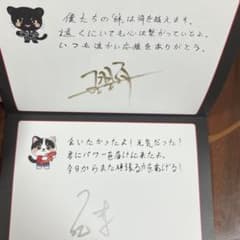 僕たちの絆は海を越えます。
遠くにいても心は繋がっているよ。
いつも温かい応援をありがとう。
会いたかったよ！元気だった？
君にパワーを届けに来たよ。
今日からまた頑張る力をあげる！